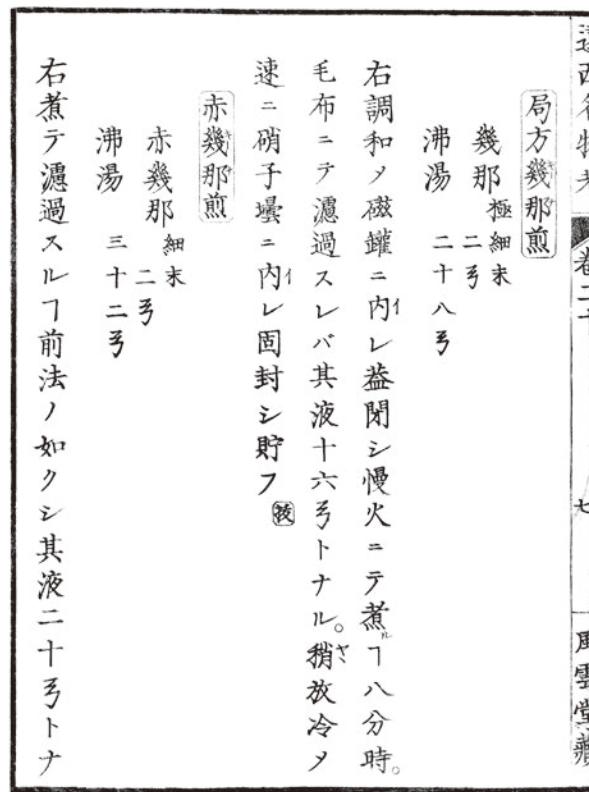 遠西名物考 卷二十 七 風雲堂藏
局方幾那煎
幾那 極細末 二弓
沸湯 二十八弓
右調和メ磁鑵ニ内イレ葢閉シ慢火ニテ煮ルヿ八分時。
毛布ニテ濾過スレバ其液十六弓トナル。稍ヤヽ放冷メ
速ニ硝子壜ニ内イレ固封シ貯フ 技
赤幾那煎
赤幾那 細末 二弓
沸湯 三十二弓
右煮テ濾過スルヿ前法ノ如クシ其液二十弓トナ